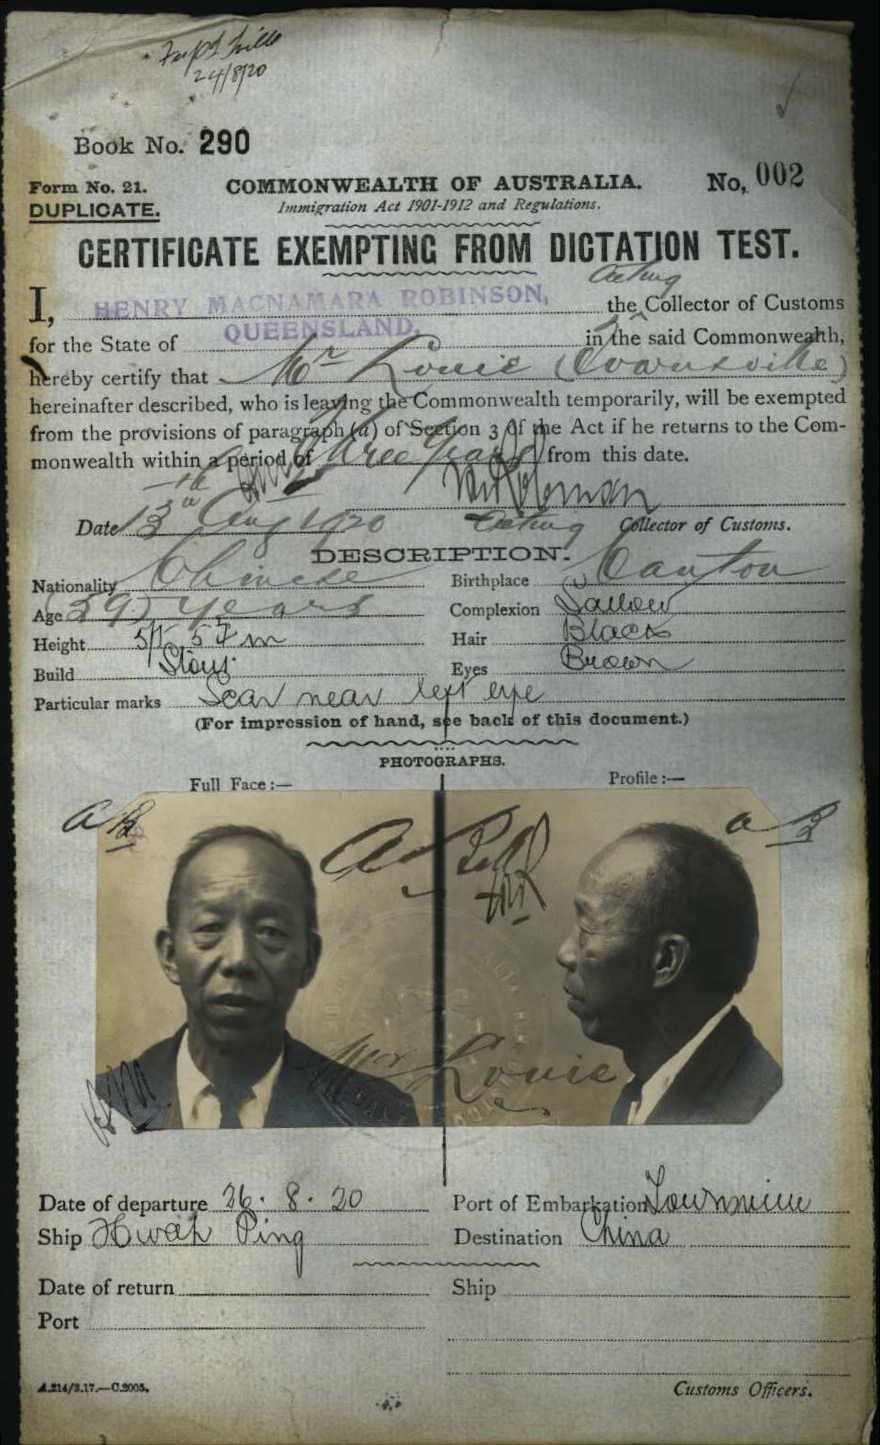 24/8/20
Book No. 290
Form No. 21.
COMMONWEALTH OF AUSTRALIA.
No. 002
DUPLICATE.
Immigration Act 1901-1912 and Regulations.
CERTIFICATE EXEMPTING FROM DICTATION TEST.
Acting
I, HENRY MACNAMARA ROBINSON, the Collector of Customs
for the State of QUEENSLAND, in the said Commonwealth,
hereby certify that Mr Louie
hereinafter described, who is leaving the Commonwealth temporarily, will be exempted
from the provisions of paragraph (a) of Section 3 of the Act if he returns to the Com-
monwealth within a period of Three Years from this date.
Date 13th Aug 1920 Acting Collector of Customs.
DESCRIPTION.
Nationality Chinese
Birthplace Canton
Age (39) years
Complexion Sallow
Height 5ft
Hair Black
Build Stout
Eyes Brown
Particular marks Scar near left eye
(For impression of hand, see back of this document.)
PHOTOGRAPHS.
Full Face :—
Profile :—
Louie
Date of departure 26. 8. 20
Port of Embarkation Townsville
Ship Hwah Ping
Destination China
Date of return
Ship
Port
A.214/3.17.—C.2005.
Customs Officers.